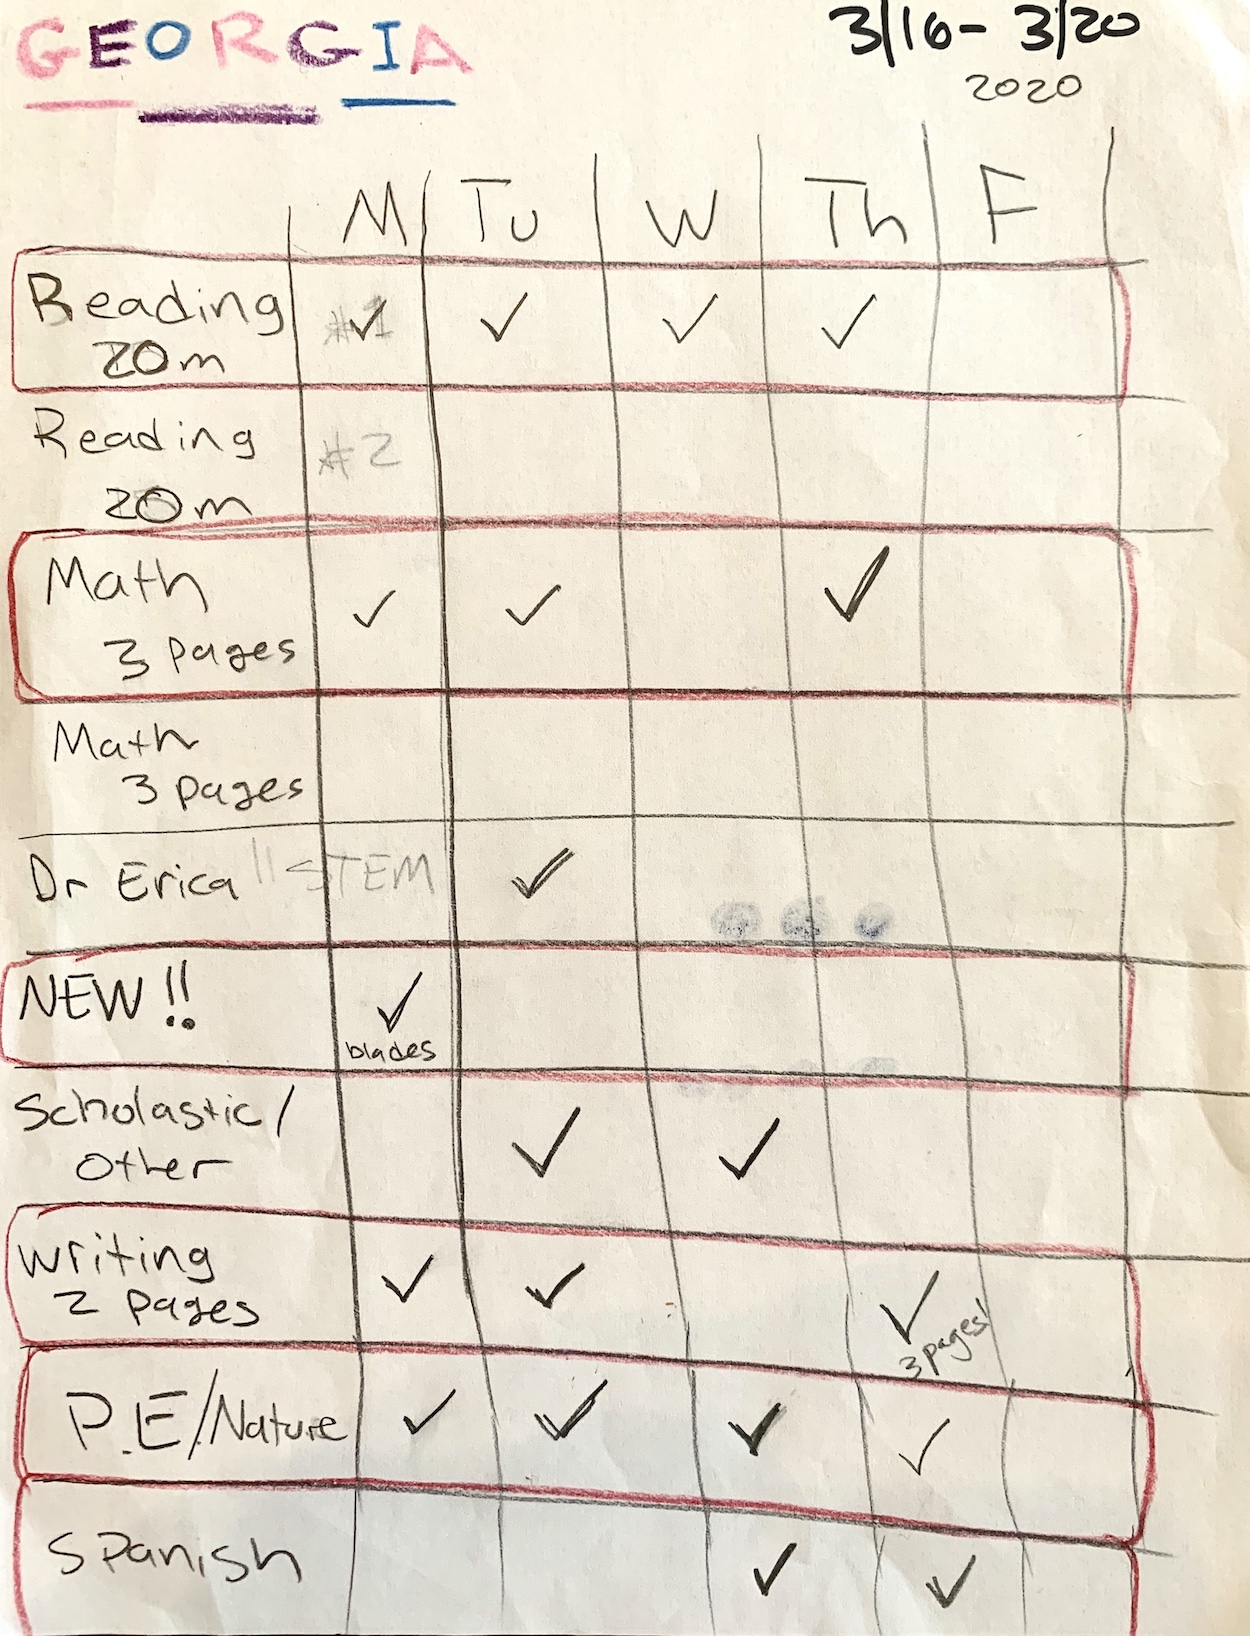 GEORGIA
3/16 - 3/20
2020
M Tu W Th F
Reading #1 ✓ ✓ ✓ ✓
20m
Reading #2
20m
Math ✓ ✓ ✓
3 pages
Math
3 pages
Dr Erica !! STEM ✓
NEW!! ✓
blades
Scholastic/ ✓ ✓
Other
Writing ✓ ✓ ✓
2 pages
3 pages!
P.E./Nature ✓ ✓ ✓ ✓
Spanish ✓ ✓